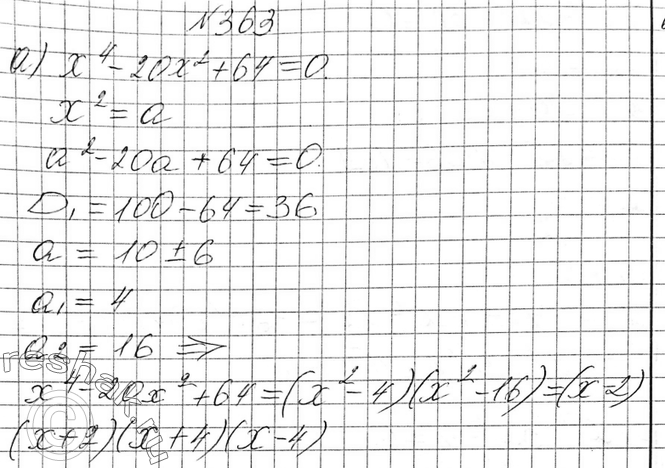 №363
а) x⁴-20x²+64=0.
x²=a
a²-20a+64=0.
D₁=100-64=36
a=10±6
a₁=4
a₂=16 ⇒
x⁴-20x²+64=(x²-4)(x²-16)=(x-2)
(x+2)(x+4)(x-4)